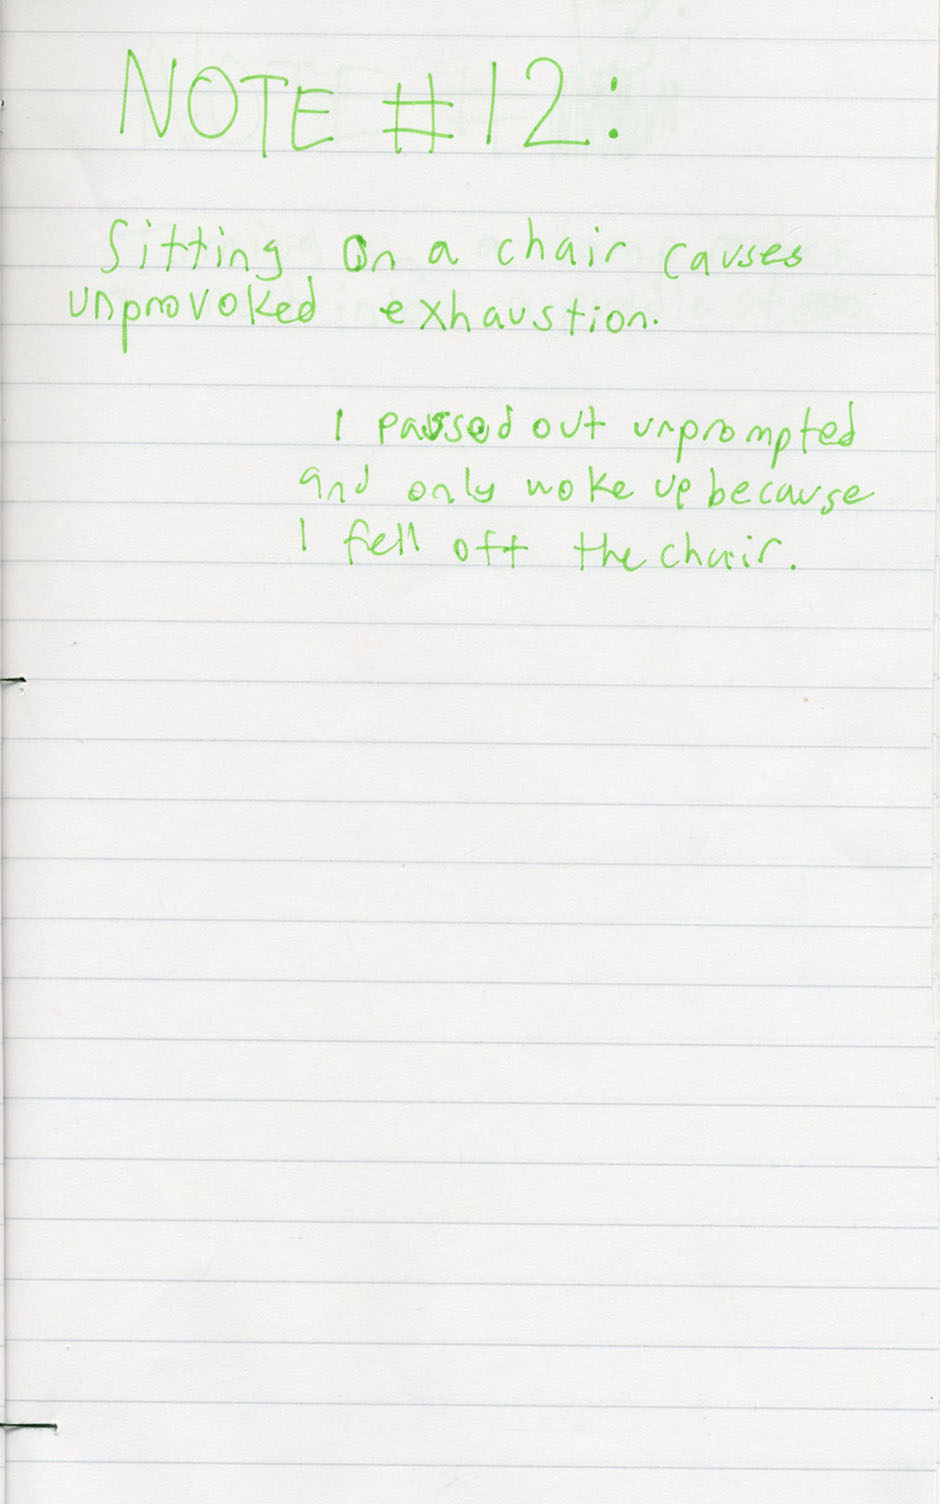 NOTE #12:
Sitting on a chair causes
unprovoked exhaustion.
I passed out unprompted
and only woke up because
I fell off the chair.